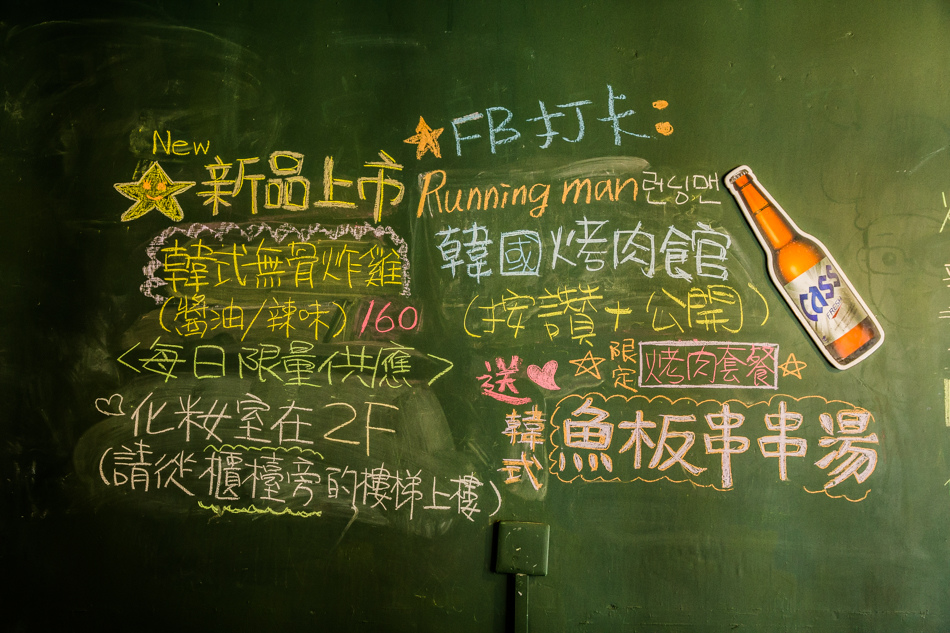 New
新品上市
韓式無骨炸雞
(醬油/辣味) 160
<每日限量供應>
化妝室在2F
(請從櫃檯旁的樓梯上樓)
FB.打卡:
Running man 런닝맨
韓國烤肉館
(按讚+公開)
送 限定 烤肉套餐
韓式 魚板串串湯
Cass
FRESH